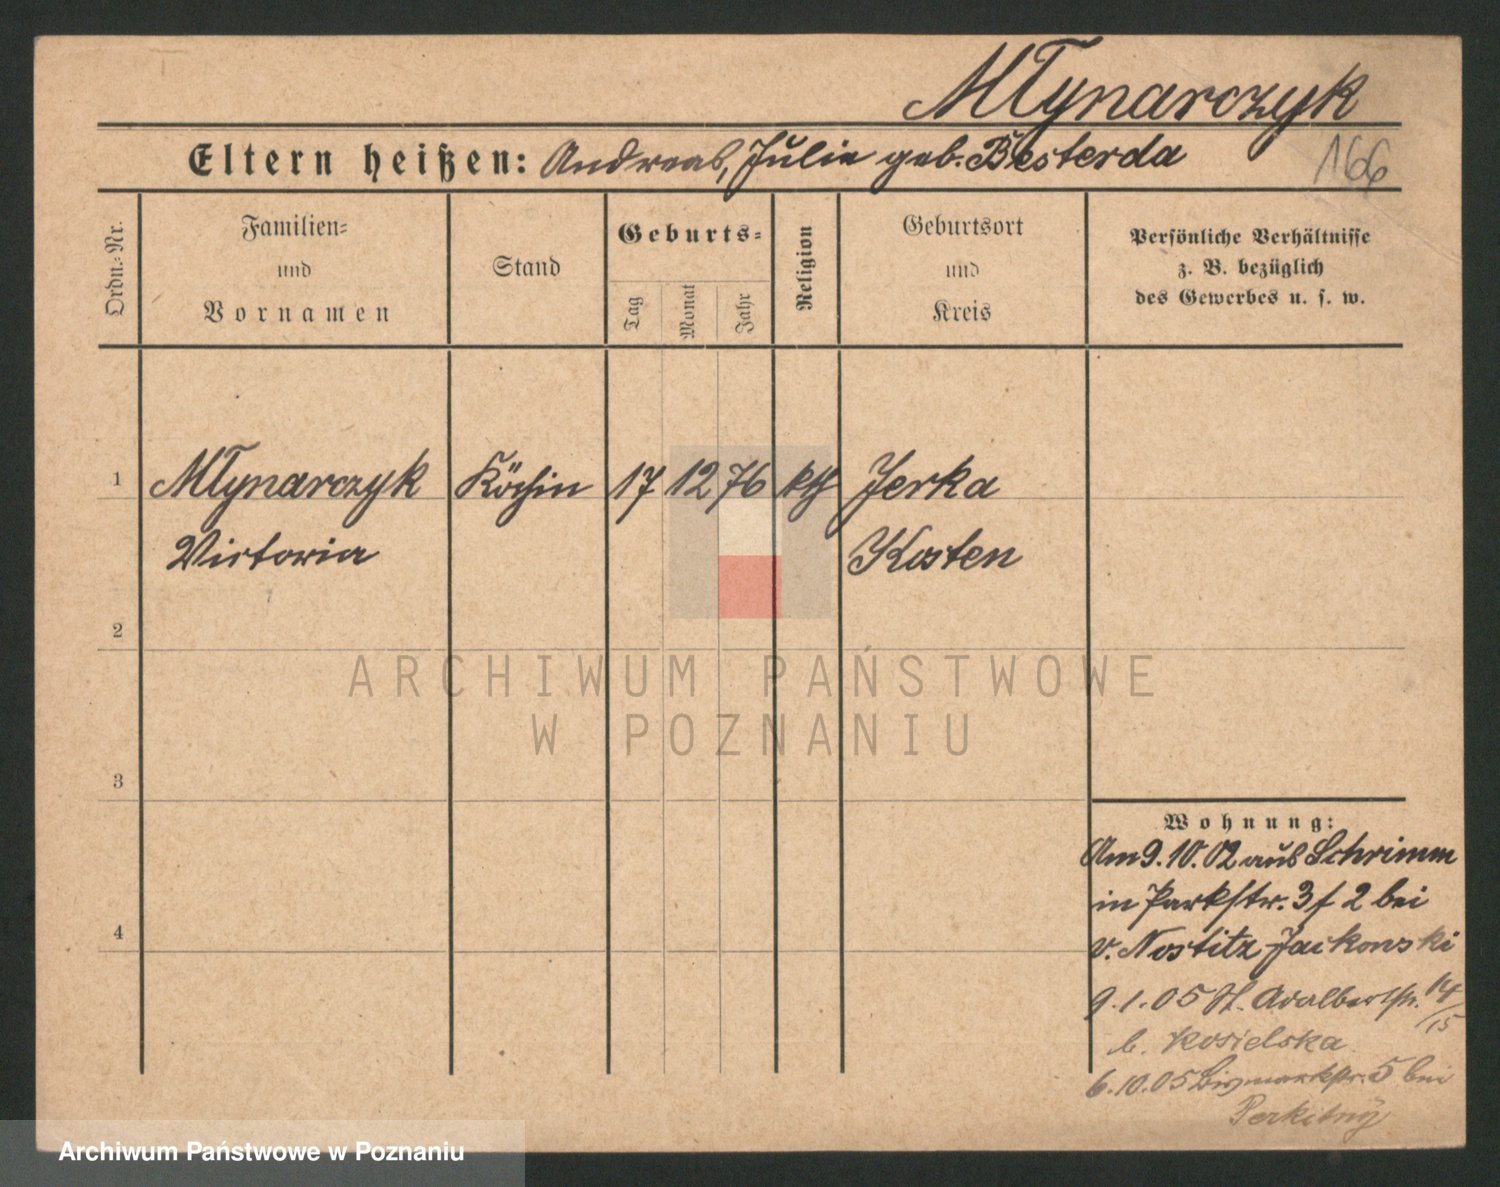 Młynarczyk
Eltern heißen: Andreas, Julie geb. Besterda
166
Ordn.-Nr.
Familien-
und
Vornamen
Stand
Geburts-
Tag
Monat
Jahr
Religion
Geburtsort
und
Kreis
Persönliche Verhältnisse
z. B. bezüglich
des Gewerbes u. s. w.
1 Młynarczyk Köchin 17 12 76 kth Jerka
Victoria Kosten
2
ARCHIWUM PAŃSTWOWE
W POZNANIU
3
Wohnung:
Am 9.10.02 aus Schrimm
in Parkstr. 3 f 2 bei
4
v. Nostitz Jackowski
9.1.05 St. Adalbertstr. 14/15
b. Kosielska
6.10.05 Bismarckstr. 5 bei
Perkitny
Archiwum Państwowe w Poznaniu